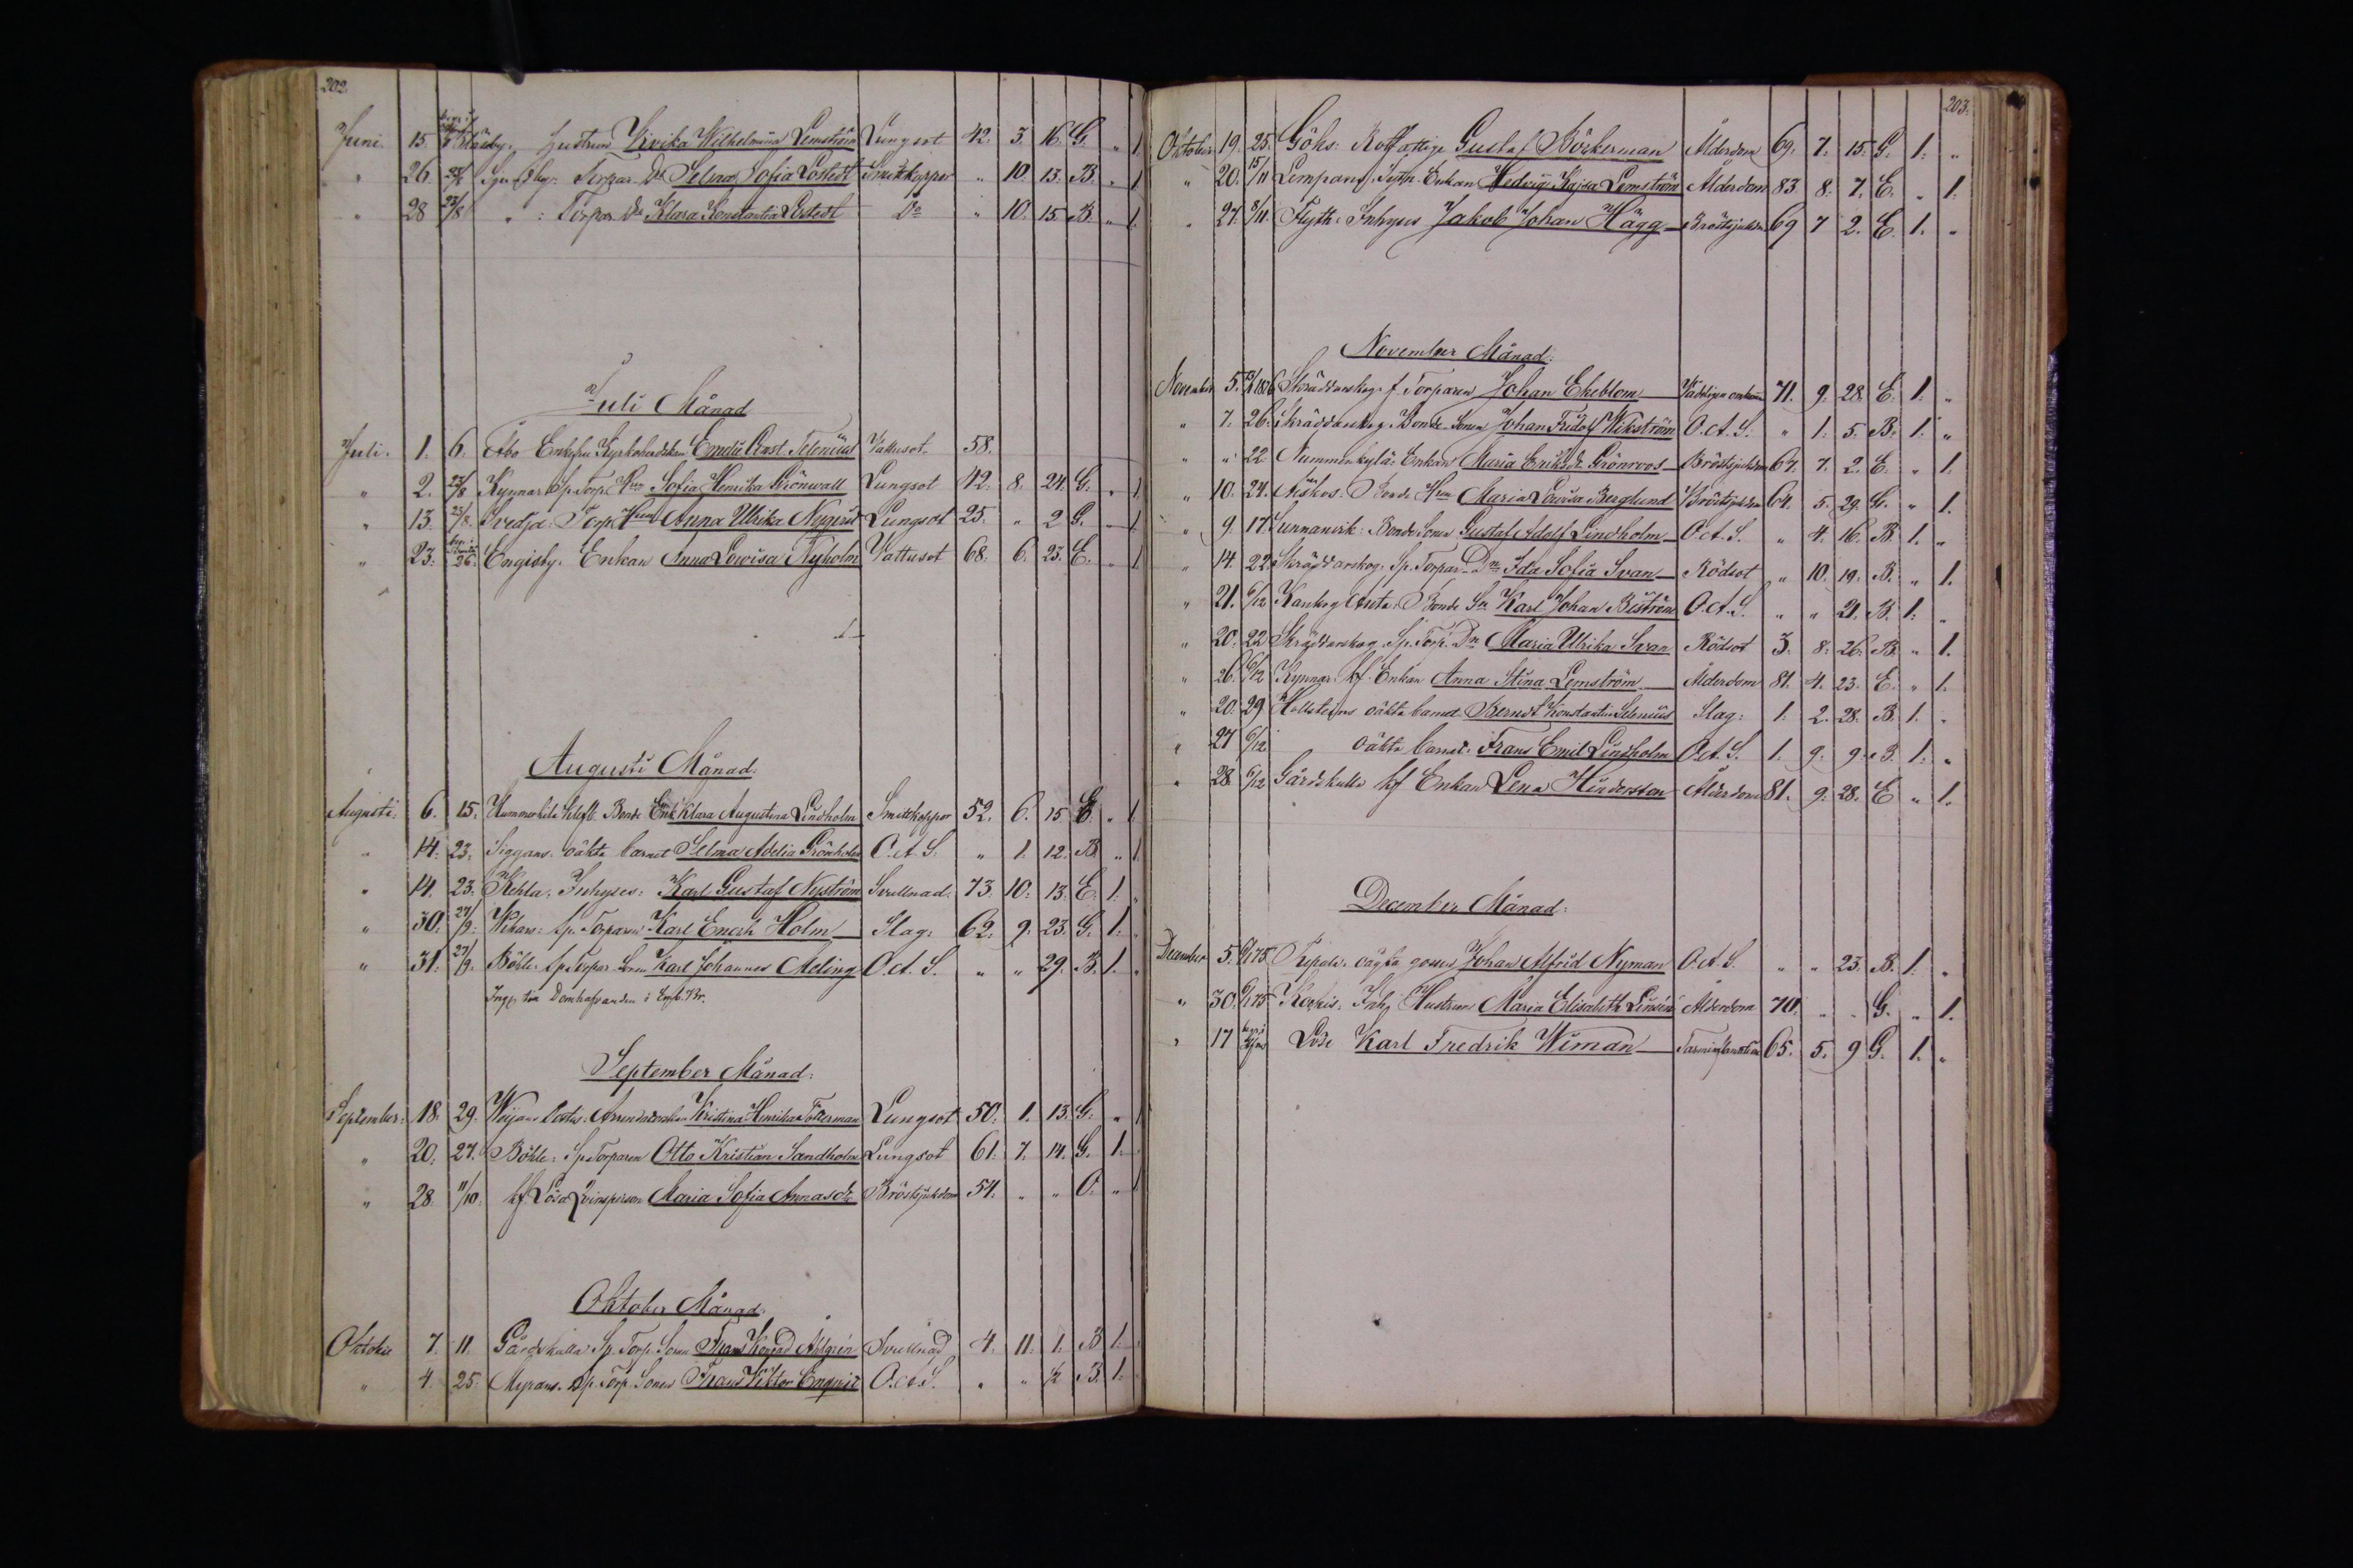 202.
Juni. 15. Hustrun Ulrika Wilhelmina Lemström Lungsot 42. 3. 16. G. „ 1.
„ 26. 23/8 Torpar Dr Selma Sofia Löstedt Smittkoppor „ 10. 13. B. „ 1.
„ 28 23/8 „ : Torpar Dr Klara Konstantia Löstedt Do „ 10. 15. B. „ 1.
Juli Månad
Juli. 1. 6. Åbo Enkefru Kyrkoherdskan Emelie Const. Selenius Vattusot. 58.
„ 2. 23/8 Kynnar Sp. Torp. Hru Sofia Henrika Grönwall Lungsot 42. 8. 24. G. „ 1.
„ 13. 23/8. Svedja. Torp. Hru Anna Ulrika Nygrén Lungsot 25. „ 2 G. „ 1.
„ 23. 26. Engisby. Enkan Anna Lowisa Nyholm Vattusot 68. 6. 23. E. „ 1
Augusti Månad.
Augusti. 6. 15. Bonde Enk. Klara Augustina Lindholm Smittkoppor 52. 6. 15 E. „ 1
„ 14. 23. Siggans. oäkta barnet Selma Adelia Grönholm O.A.S. „ 1. 12. B. „ 1.
„ 14. 23. Rehla. Inhyses: Karl Gustaf Nyström Svullnad. 73. 10. 13. E. 1. „
„ 30. 27/9. Wikars: Sp. Torparen Karl Emerik Holm Slag. 62. 9. 23. G. 1. „
„ 31. 27/9. Böhle. Sp Torpar Sonen Karl Johannes Aeling O.A.S. „ „ 29. B. 1. „
September Månad:
September: 18. 29. Kristina Henrika Fölterman Lungsot 50. 1. 13. G. „ 1
„ 20. 27. Böhle: Sp. Torparen Otto Kristian Sandholm Lungsot 61. 7. 14. G. 1.
„ 28. 11/10. hf. Lösa Qvinsperson Maria Sofia Annasdr Bröstsjukdom 54. „ „ O. „ 1
Oktober Månad.
Oktober 7. 11. Gårdskulla Sp. Torp. Sonen Frans Konrad Ahlgrén Svullnad 4. 11. 1. B 1.
„ 4. 25. Myrans. Sp. Torp. Sonen Frans Viktor Enqvist O.A.S. „ „ ½ B. 1.
203.
Oktober 19. 25. Göhs: Rotfattige Gustaf Björkerman Ålderdom 69. 7. 15. G. 1. „
„ 20. 15/11 Enkan Hedvig Kajsa Lemström Ålderdom 83. 8. 7. E. „ 1.
„ 27. 8/11 Flyth: Inhyses Jakob Johan Hägg Bröstsjukdm 69 7 2. E. 1. „
November Månad.
November 5. Skräddarskog f. Torparen Johan Ekeblom Vådligen omkom 71. 9. 28. E. 1. „
„ 7. 26. Skräddarskog Bonde Sonen Johan Fridolf Wikström O.A.S. „ 1. 5. B. 1. „
„ „ 22 Nummenkylä: Enkan Maria Eriksdr Grönroos Bröstsjukdom 67. 7. 2. E. „ 1.
„ 10. 24. Näkös. Bonde Hru Maria Lovisa Berglund Bröstsjukdom 64. 5. 29. G. „ 1.
„ 9. 17. Sunnanvik: Bonde Sonen Gustaf Adolf Lindholm O.A.S. „ 4. 16. B. 1. „
„ 14. 22. Skräddarskog. Sp. Torpar Dr Ida Sofia Svan Rödsot „ 10. 19. B. „ 1.
„ 21. 6/12 Kankog Bonde Sn Karl Johan Biström O.A.S. „ „ 21. B. 1. „
„ 20. 22 Skräddarskog. Sp. Torp. Dr Maria Ulrika Svan Rödsot 3. 8. 26. B. „ 1.
„ 26. 6/12 Kynnar. hf. Enkan Anna Stina Lemström Ålderdom 81. 4. 23. E. „ 1.
„ 20. 29 oäkta barnet Berndt Konstantin Selenius Slag. 1. 2. 28. B. 1. „
„ 27 6/12 oäkta barnet. Frans Emil Lindholm O.A.S. 1. 9. 9. B. 1. „
„ 28. 6/12 Gårdskulla hf Enkan Lena Hindersson Ålderdom 81. 9. 28. E. „ 1.
December Månad:
December 5. oägta gossen Johan Alfrid Nyman O.A.S. „ „ 23. B. 1. „
„ 30. Hustrun Maria Elisabeth Linsén Ålderdom 70. „ „ G. „ 1.
„ 17 Löse Karl Fredrik Wiman Tarminflamation 65. 5. 9 G. 1. „